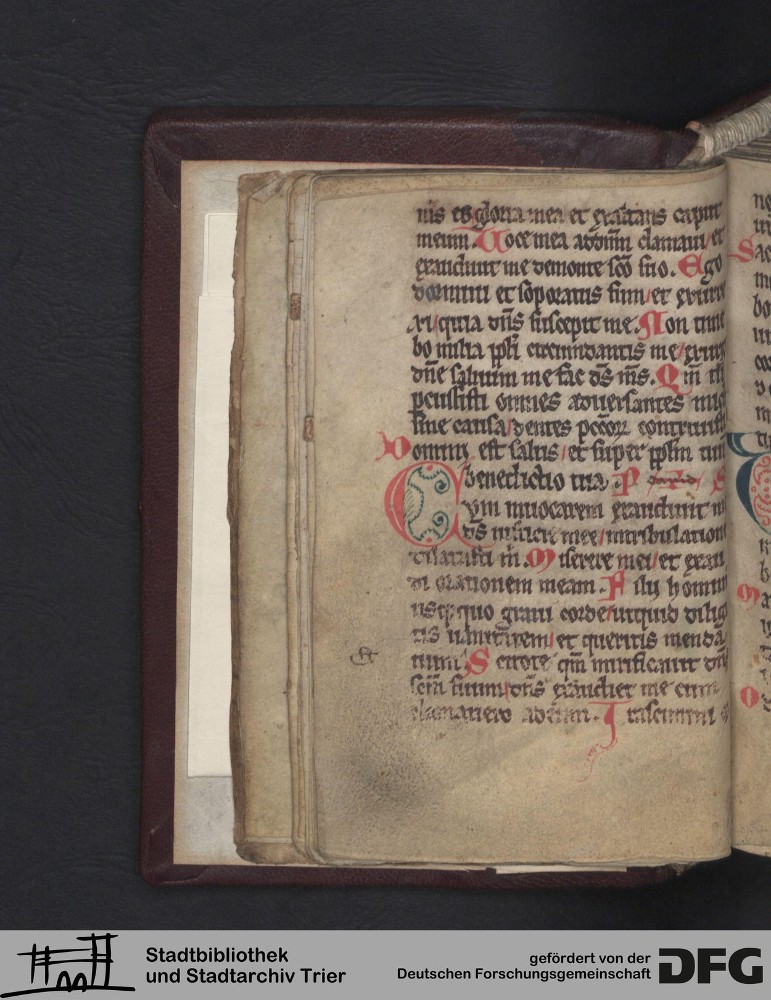 nis es gloria mea et exaltans caput
meum. Voce mea ad dnm clamaui et
exaudiuit me de monte sco suo. Ego
dormiui et soporatus sum et exurre
xi quia dns suscepit me. Non time
bo milia ppli circumdantis me exurg
dne saluum me fac ds ms. Qm tu
pcussisti omnes aduersantes michi
sine causa dentes pccor contriuisti
Domini est salus et super pplm tuum
benedictio tua. P
Cvm inuocarem exaudiuit me
ds iusticie mee in tribulatione
dilatasti m. Miserere mei et exau
di orationem meam. Filii hominum
usq quo graui corde utquid diligi
tis uanitatem et queritis menda
tium. Scitote qm mirificauit dns
scm suum dns exaudiet me cum
clamauero ad eum. Irascimini
Stadtbibliothek
und Stadtarchiv Trier
gefördert von der
Deutschen Forschungsgemeinschaft
DFG